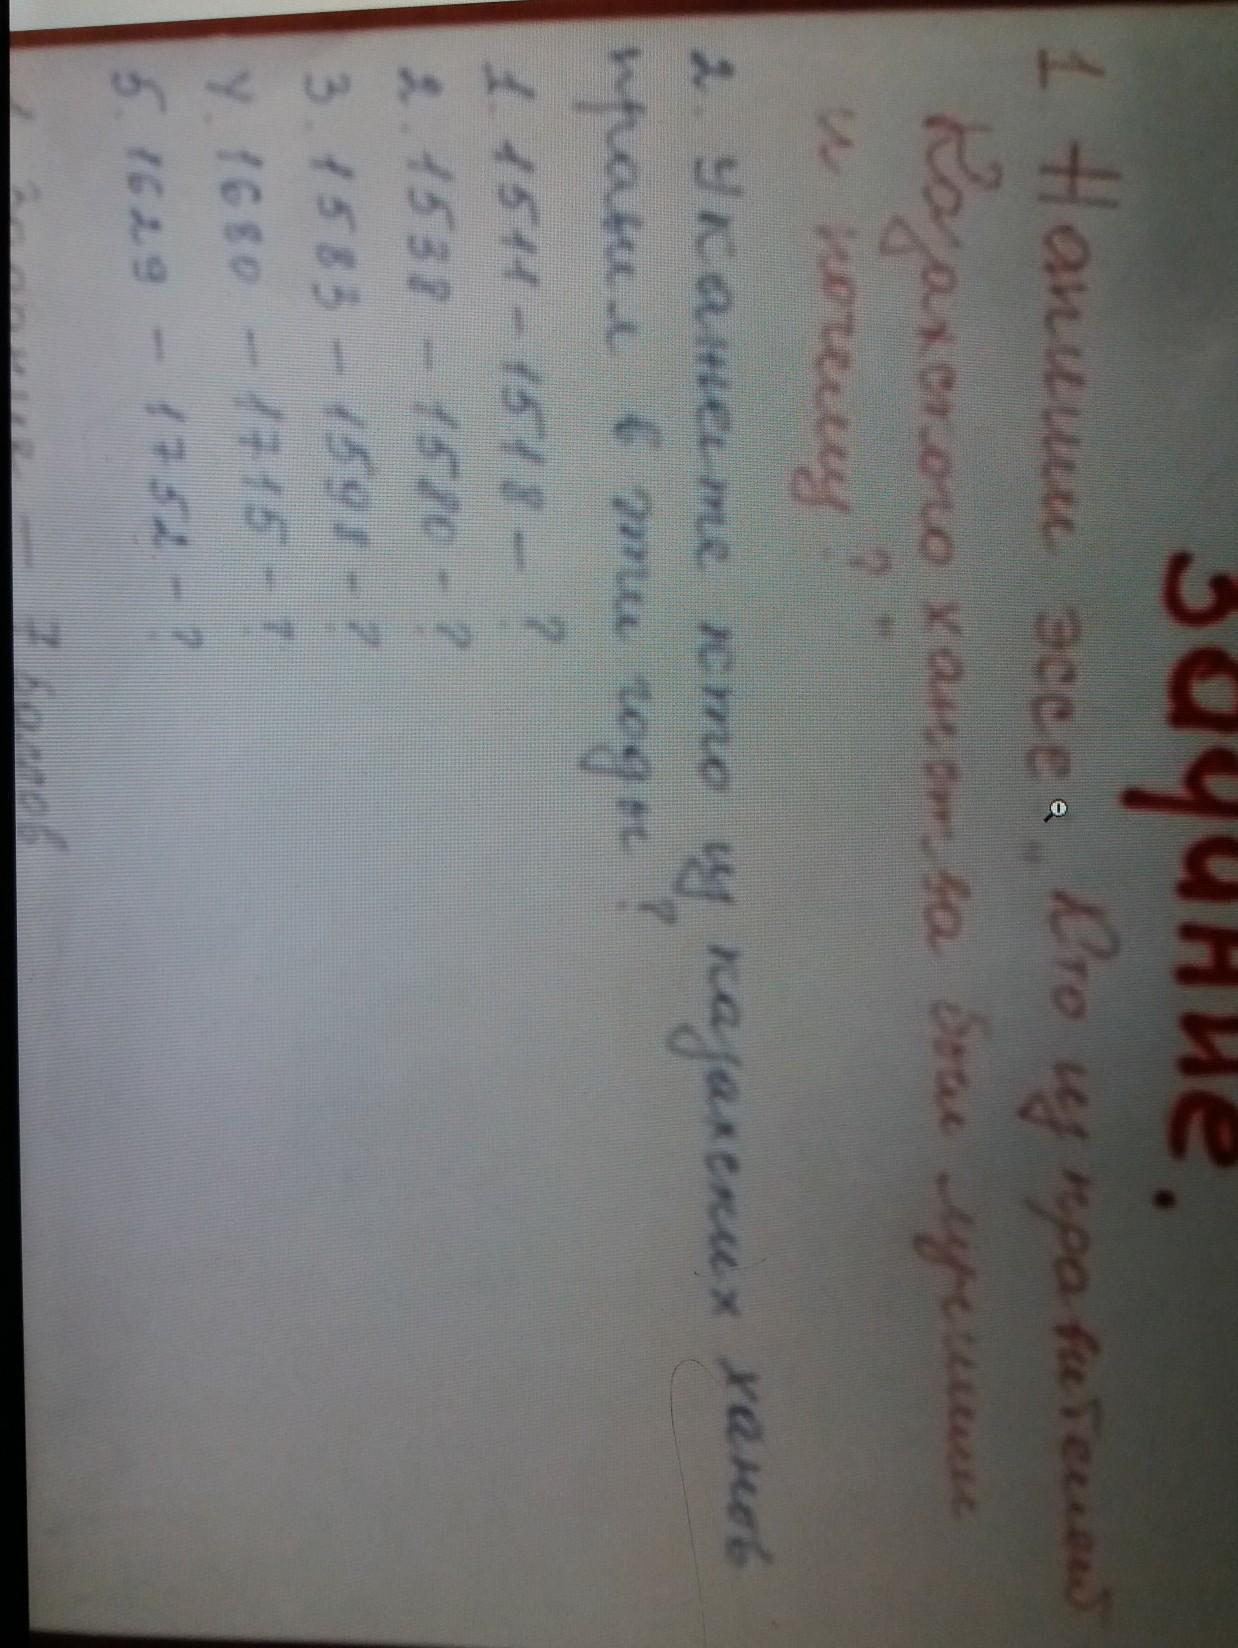 Задание.
1 Напиши эссе „Кто из правителей
Казахского ханства был лучшим
и почему?"
2. Укажите кто из казахских ханов
правил в эти годы?
1. 1511-1518 - ?
2. 1538 - 1580 - ?
3. 1583 - 1598 - ?
4. 1680 - 1715 - ?
5. 1629 - 1752 - ?
- 7 баллов